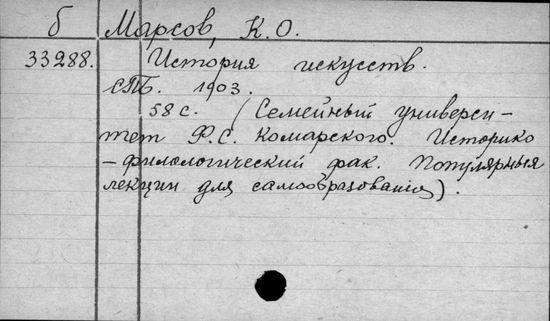 б Марсов, К. О.
33288. История искусств.
СПБ. 1903.
58 с. (Семейный универси-
тет Ф.С. Комарского. Историко
-филологический фак. Популярныя
лекции для самообразования).